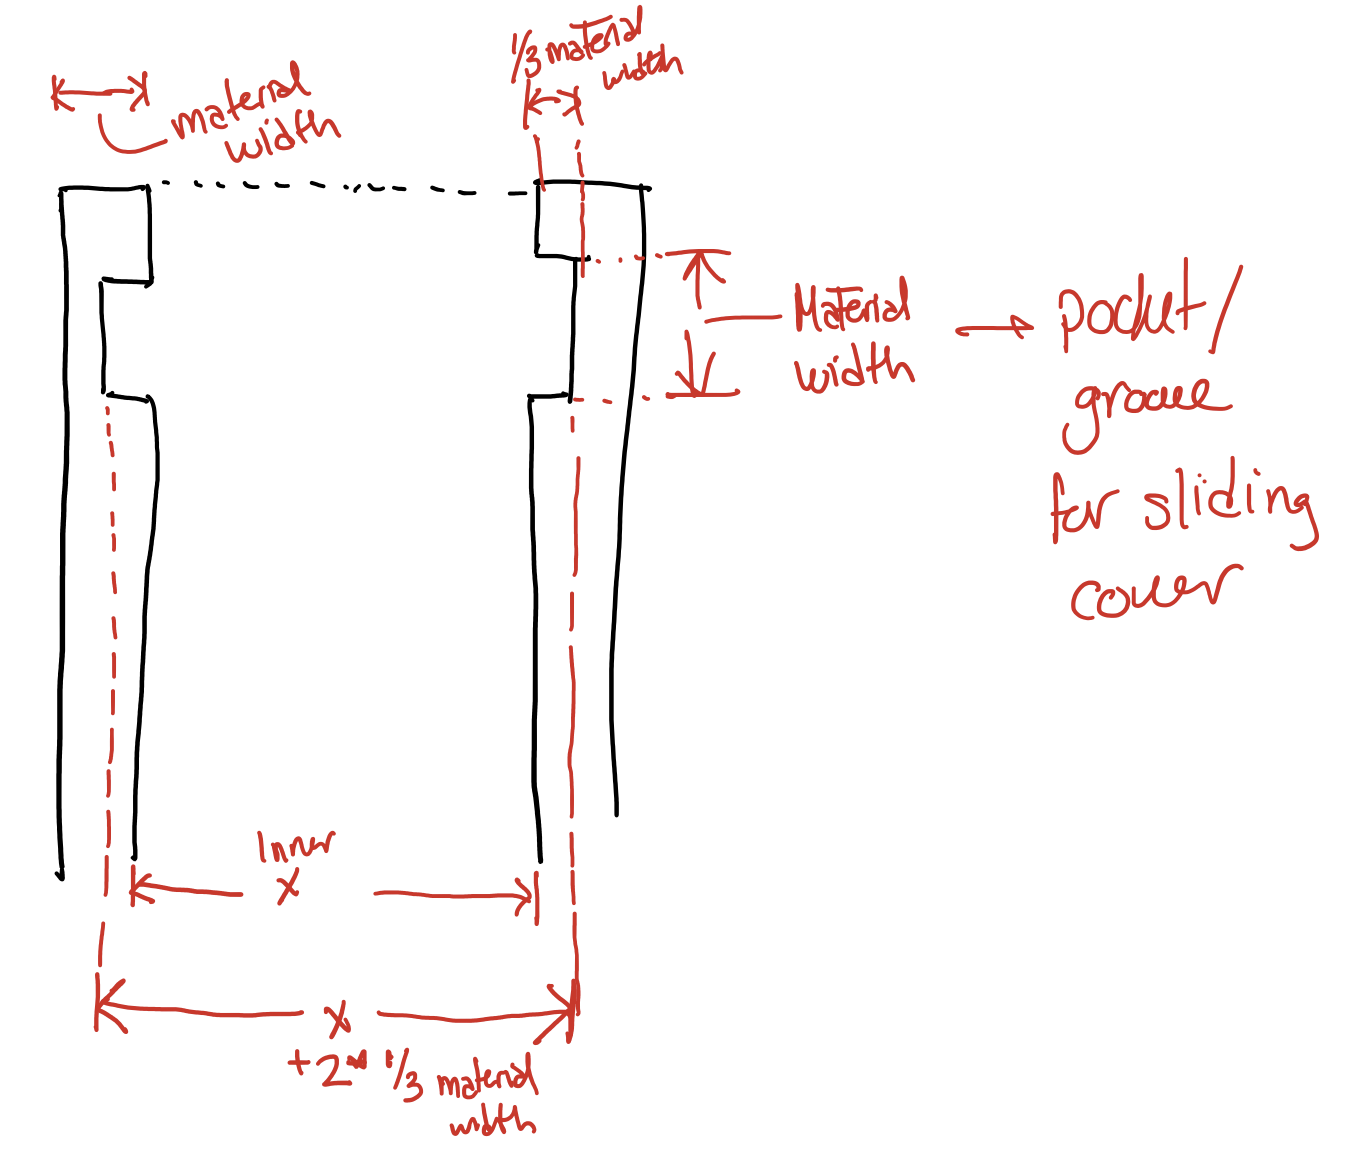 1/3 material
width
material
width
Material
width
pocket/
groove
for sliding
cover
Inner
X
X
+2* 1/3 material
width